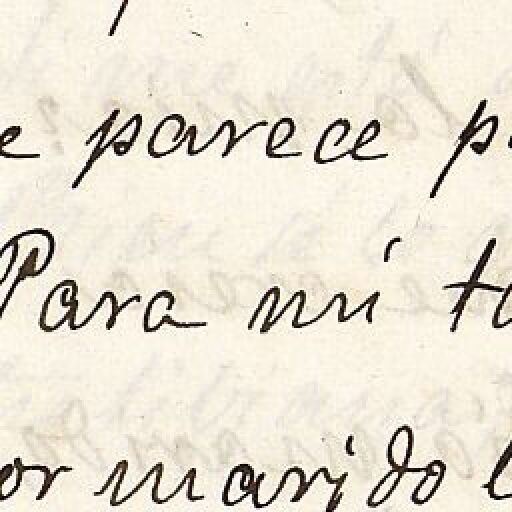 e parece p
Para mí to
or marido l